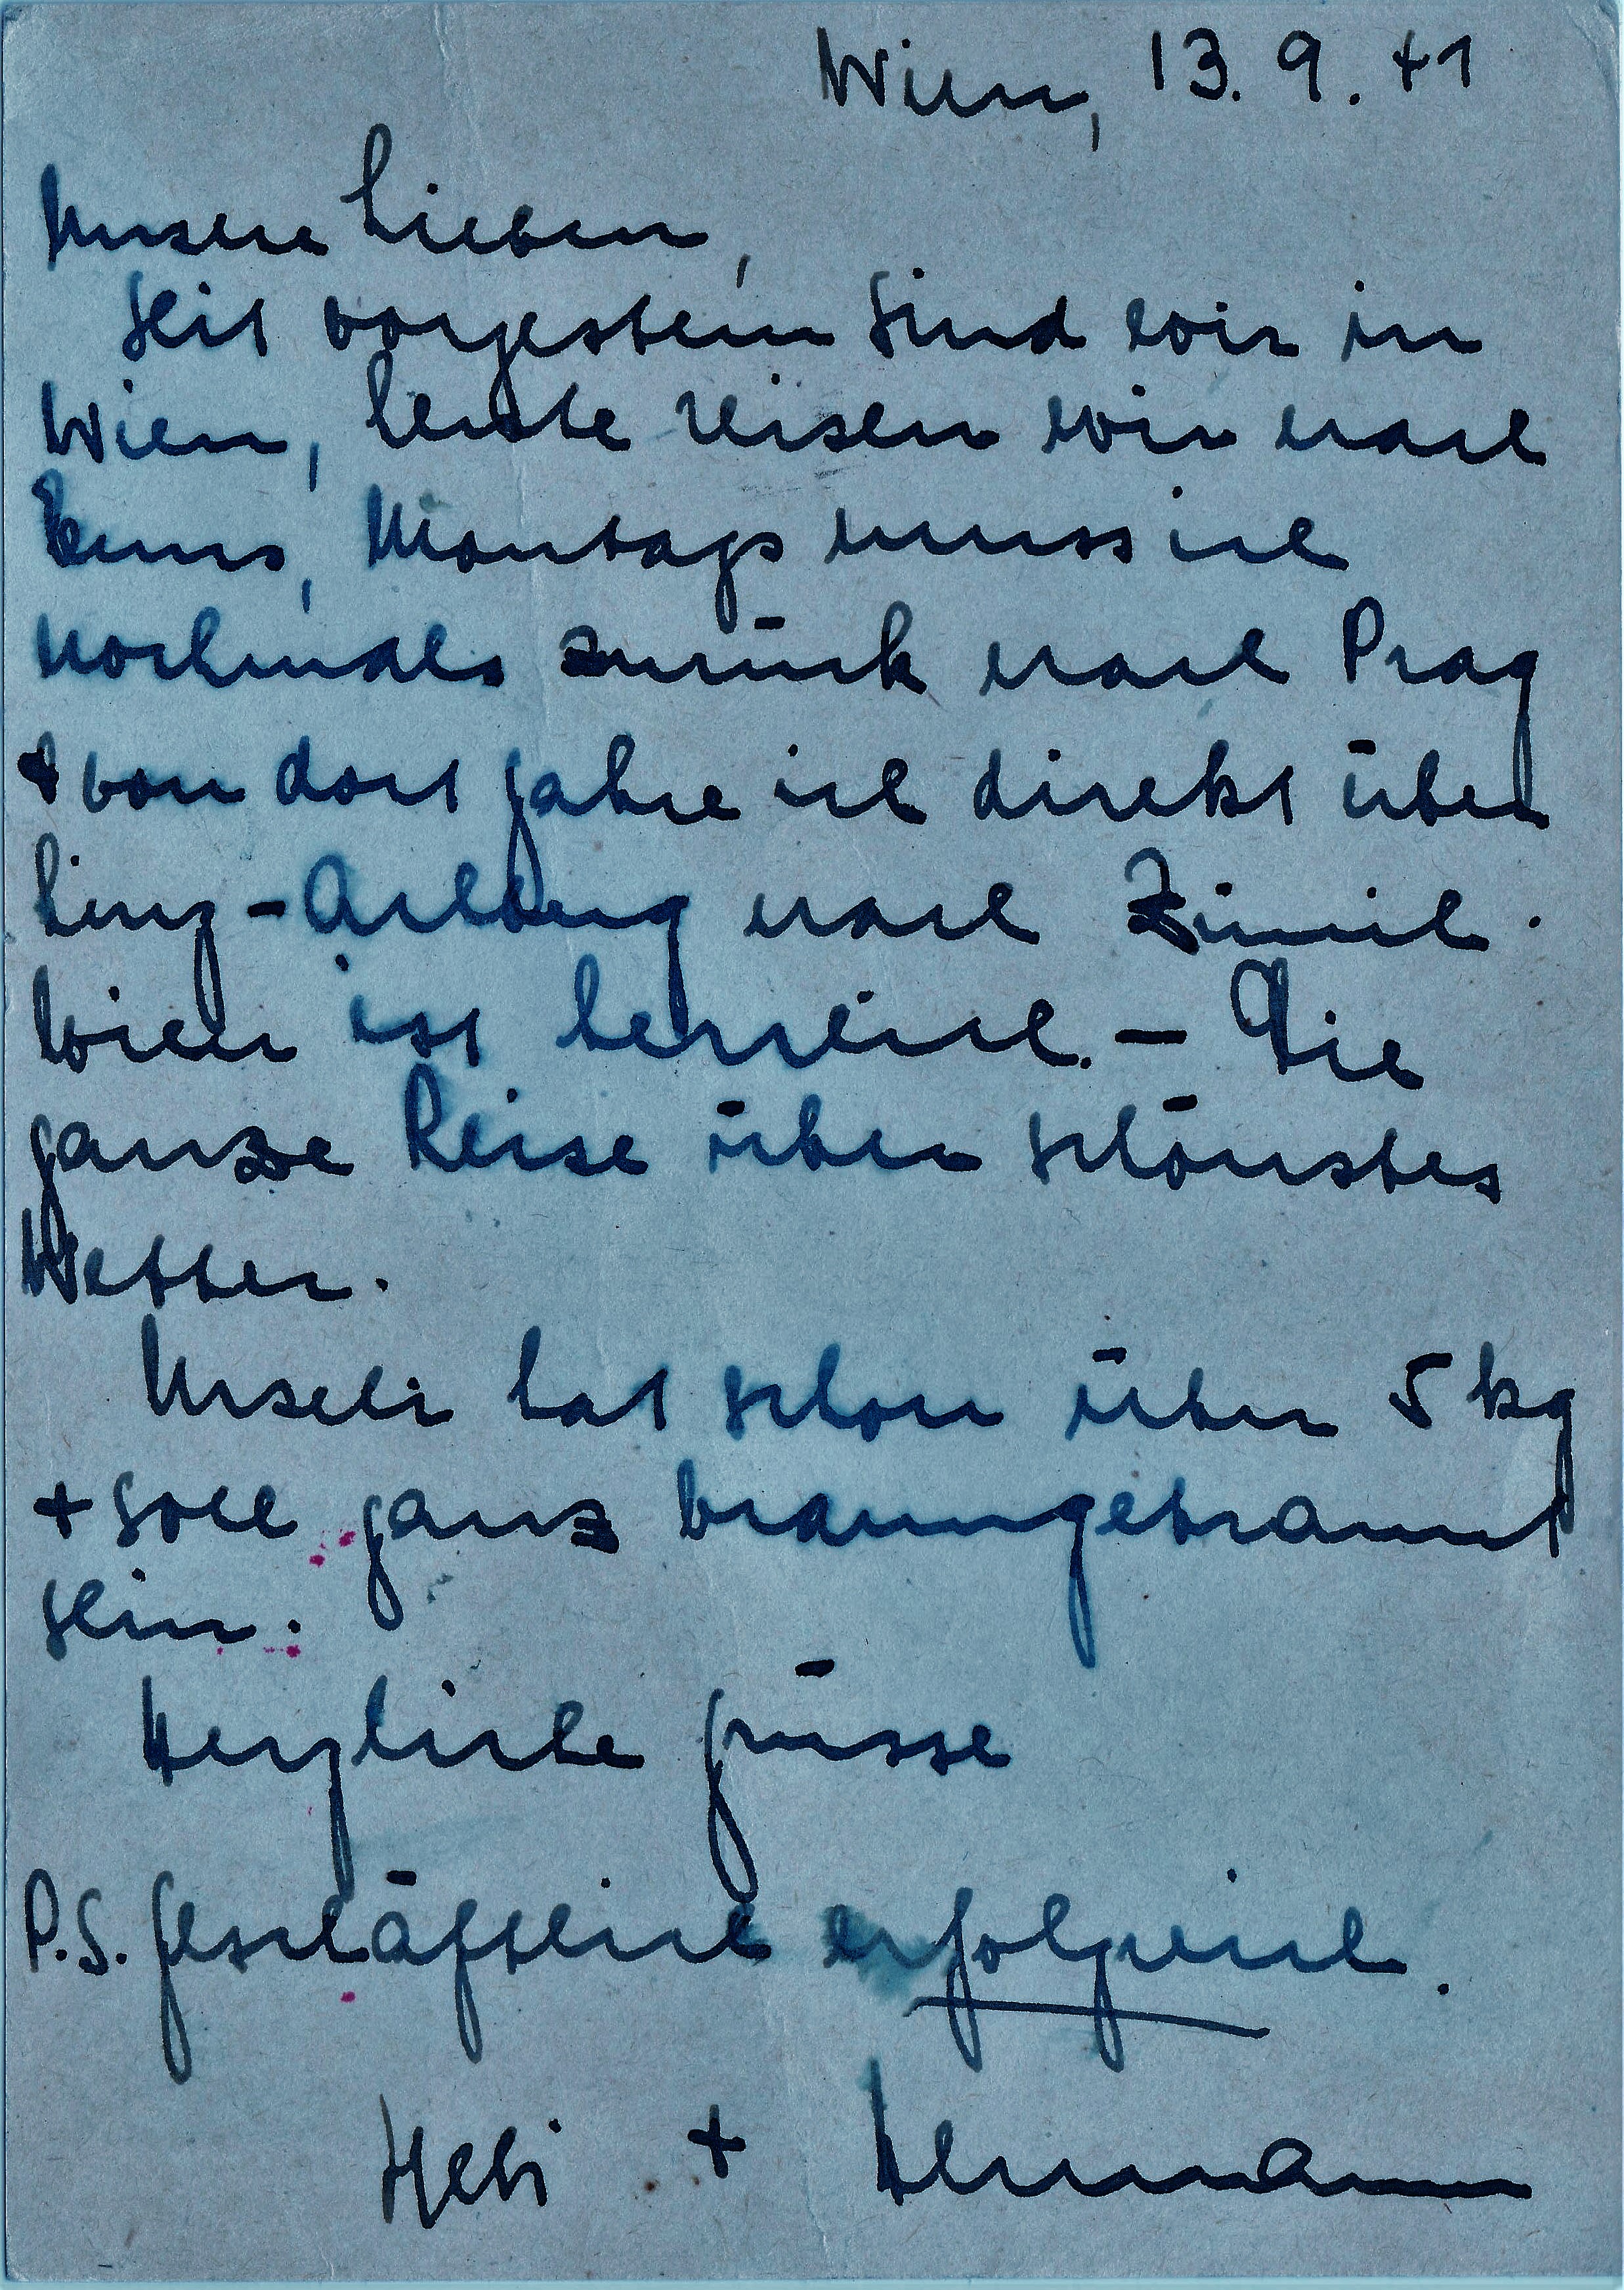 Wien, 13. 9. 41
Unsere Lieben,
Seit vorgestern sind wir in
Wien, heute reisen wir nach
Montags muss ich
nochmals zurück nach Prag
+ von dort fahre ich direkt über
Linz - Arlberg nach Zürich.
Wien ist herrlich. - Die
ganze Reise über schönstes
Wetter.
Urseli hat schon über 5 kg
+ soll ganz braungebrannt
sein.
Herzliche Grüsse
P.S. Geschäftlich erfolgreich.
Hebi + Hermann